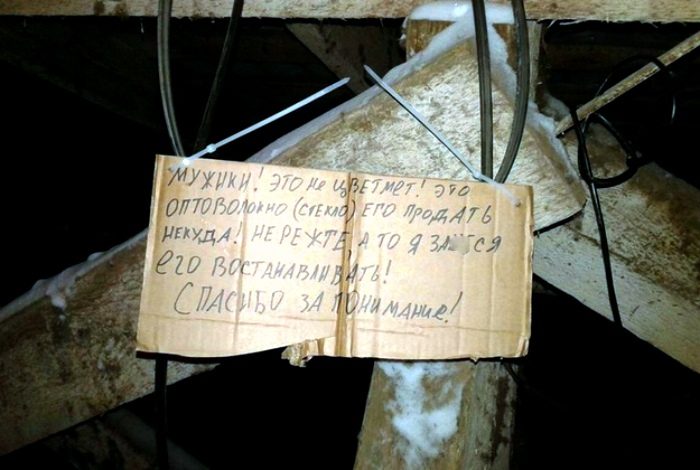 МУЖИКИ! ЭТО не ЦВЕТМЕТ! ЭТО
ОПТОВОЛОКНО (СТЕКЛО) ЕГО ПРОДАТЬ
НЕКУДА! НЕ РЕЖТЕ А ТО Я
ЕГО ВОСТАНАВЛИВАТЬ!
СПАСИБО ЗА ПОНИМАНИе!